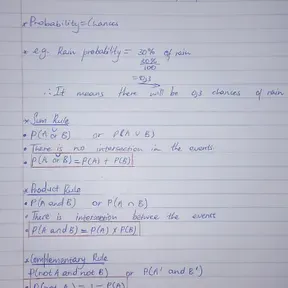 * Probability = Chances
* e.g. Rain probability = 30% of rain
30%
100
= 0.3
∴ It means there will be 0.3 chances of rain
* Sum Rule
• P(A or B) or P(A ∪ B)
• There is no intersection in the events.
• P(A or B) = P(A) + P(B)
* Product Rule
• P(A and B) or P(A ∩ B)
• There is intersection between the events
• P(A and B) = P(A) x P(B)
* Complementary Rule
P(not A and not B) or P(A' and B')
P(not A) = 1 - P(A)